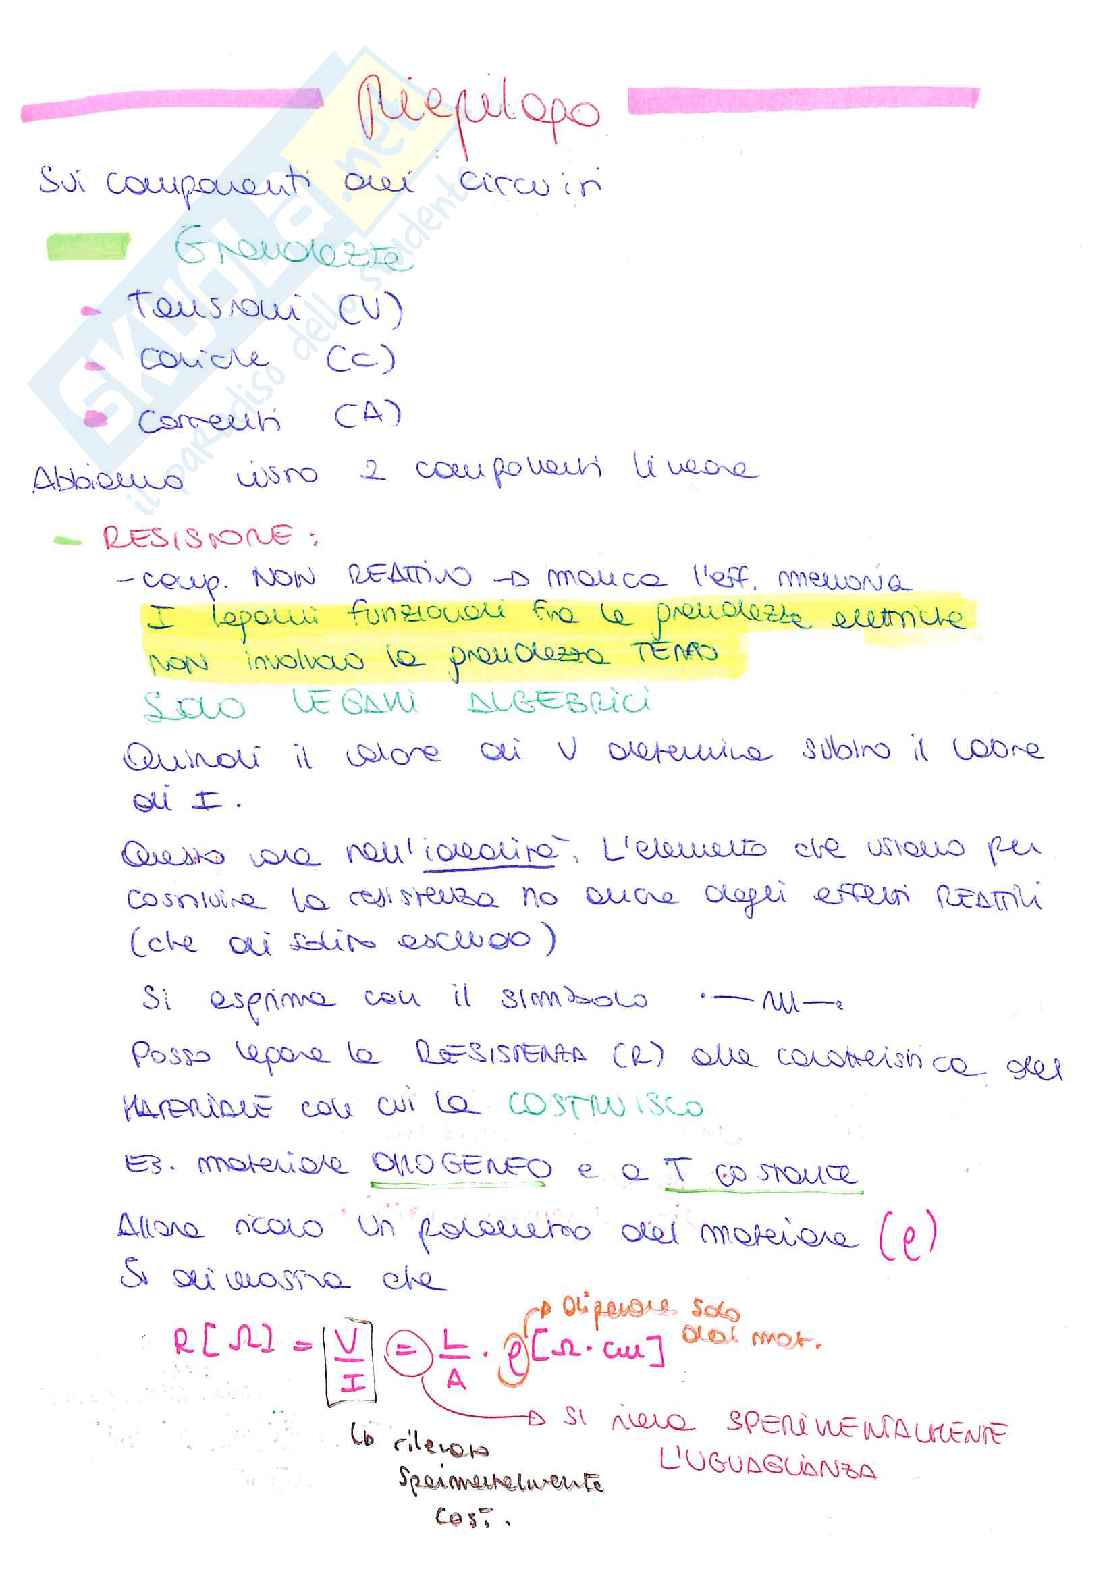 Riepilogo
Sui componenti dei circuiti
Grandezze
Tensioni (V)
cariche (C)
correnti (A)
Abbiamo visto 2 componenti lineare
- RESISTORE:
- comp. NON REATTIVO → manca l'eff. memoria
I legami funzionali fra le grandezze elettriche
NON involvono la grandezza TEMPO
Solo LEGAMI ALGEBRICI
Quindi il valore di V determina subito il valore
di I.
Questo vale nell'idealità. L'elemento che usiamo per
costruire la resistenza ha anche degli effetti REATTIVI
(che di solito escludo)
Si esprime con il simbolo
Posso legare la RESISTENZA (R) alle caratteristica del
MATERIALE con cui la COSTRUISCO
ES. materiale OMOGENEO e a T costante
Allora ricavo un parametro del materiale (ρ)
Si dimostra che
→ dipende solo
dal mat.
R[Ω] = V/I = L/A · ρ [Ω·cm]
→ si rileva SPERIMENTALMENTE
L'UGUAGLIANZA
Lo rilevato
sperimentalmente
così.
SKUOLA.net
il paradiso dello studente